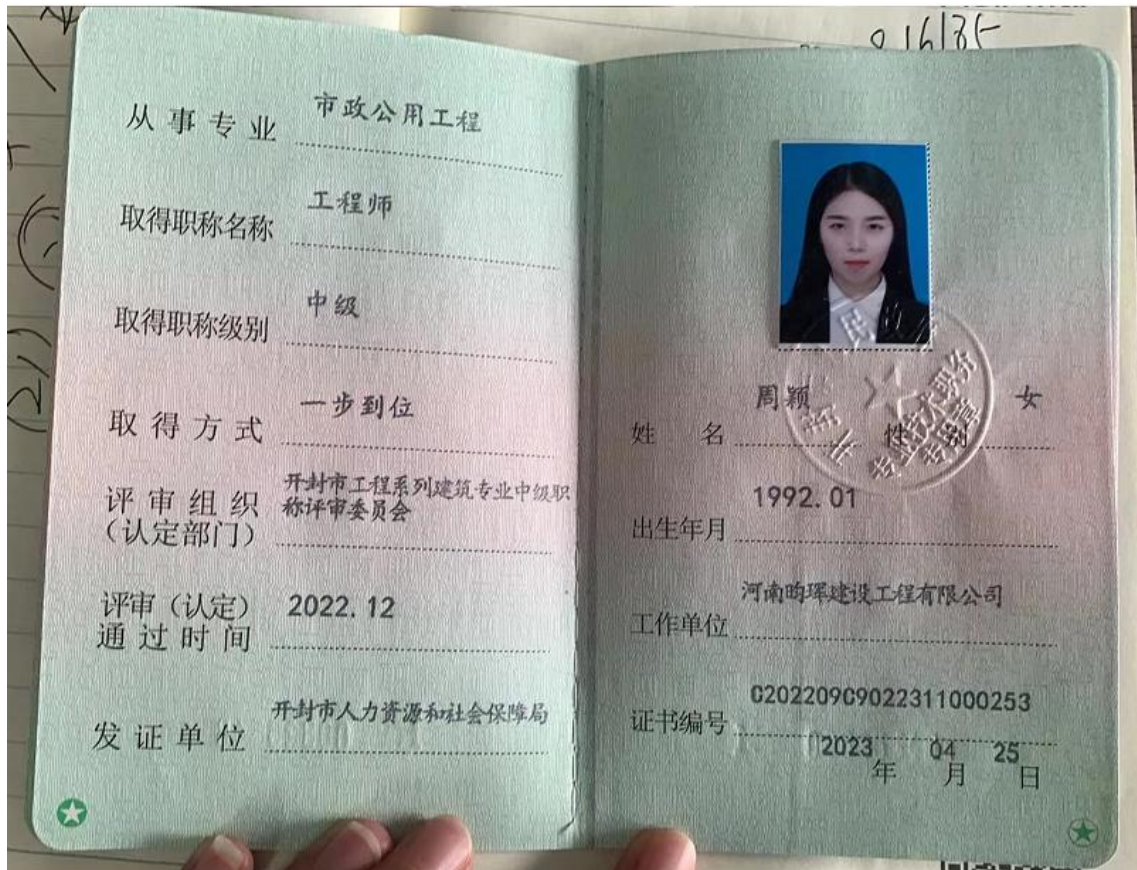 从事专业 市政公用工程
取得职称名称 工程师
取得职称级别 中级
取得方式 一步到位
评审组织 开封市工程系列建筑专业中级职
（认定部门） 称评审委员会
评审（认定） 2022.12
通过时间
发证单位 开封市人力资源和社会保障局
姓名 周颖 性别 女
出生年月 1992.01
工作单位 河南昀珲建设工程有限公司
证书编号 C202209C9022311000253
2023年 04月 25日